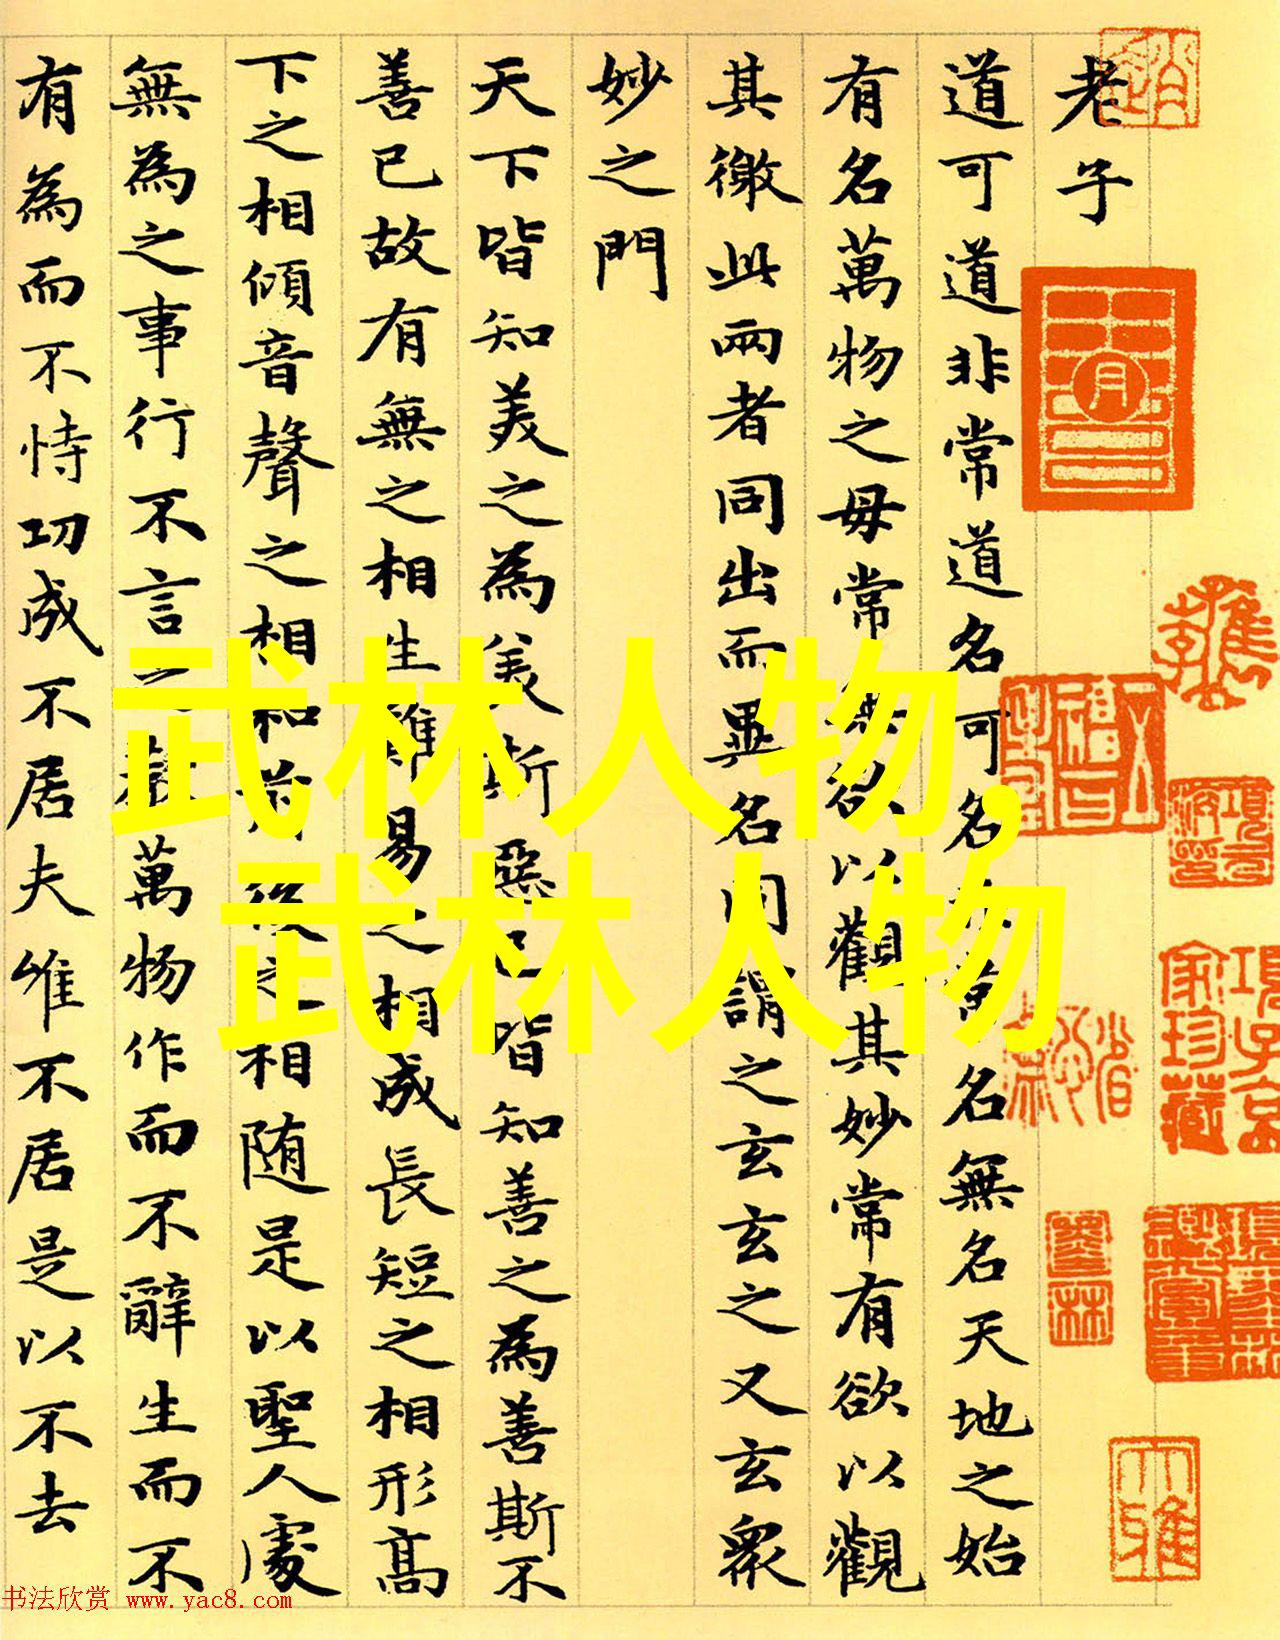 老子
道可道非常道名可名非常名無名天地之始
有名萬物之母常無欲以觀其妙常有欲以觀
其徼此兩者同出而異名同謂之玄玄之又玄衆
妙之門
天下皆知美之為美斯惡已皆知善之為善斯不
善已故有無之相生難易之相成長短之相形高
下之相傾音聲之相和前後之相随是以聖人處
無為之事行不言之教萬物作而不辭生而不
有為而不恃功成不居夫唯不居是以不去
武林人物,
武林人物
項子京家珍藏
大雅
书法欣赏 www.yac8.com